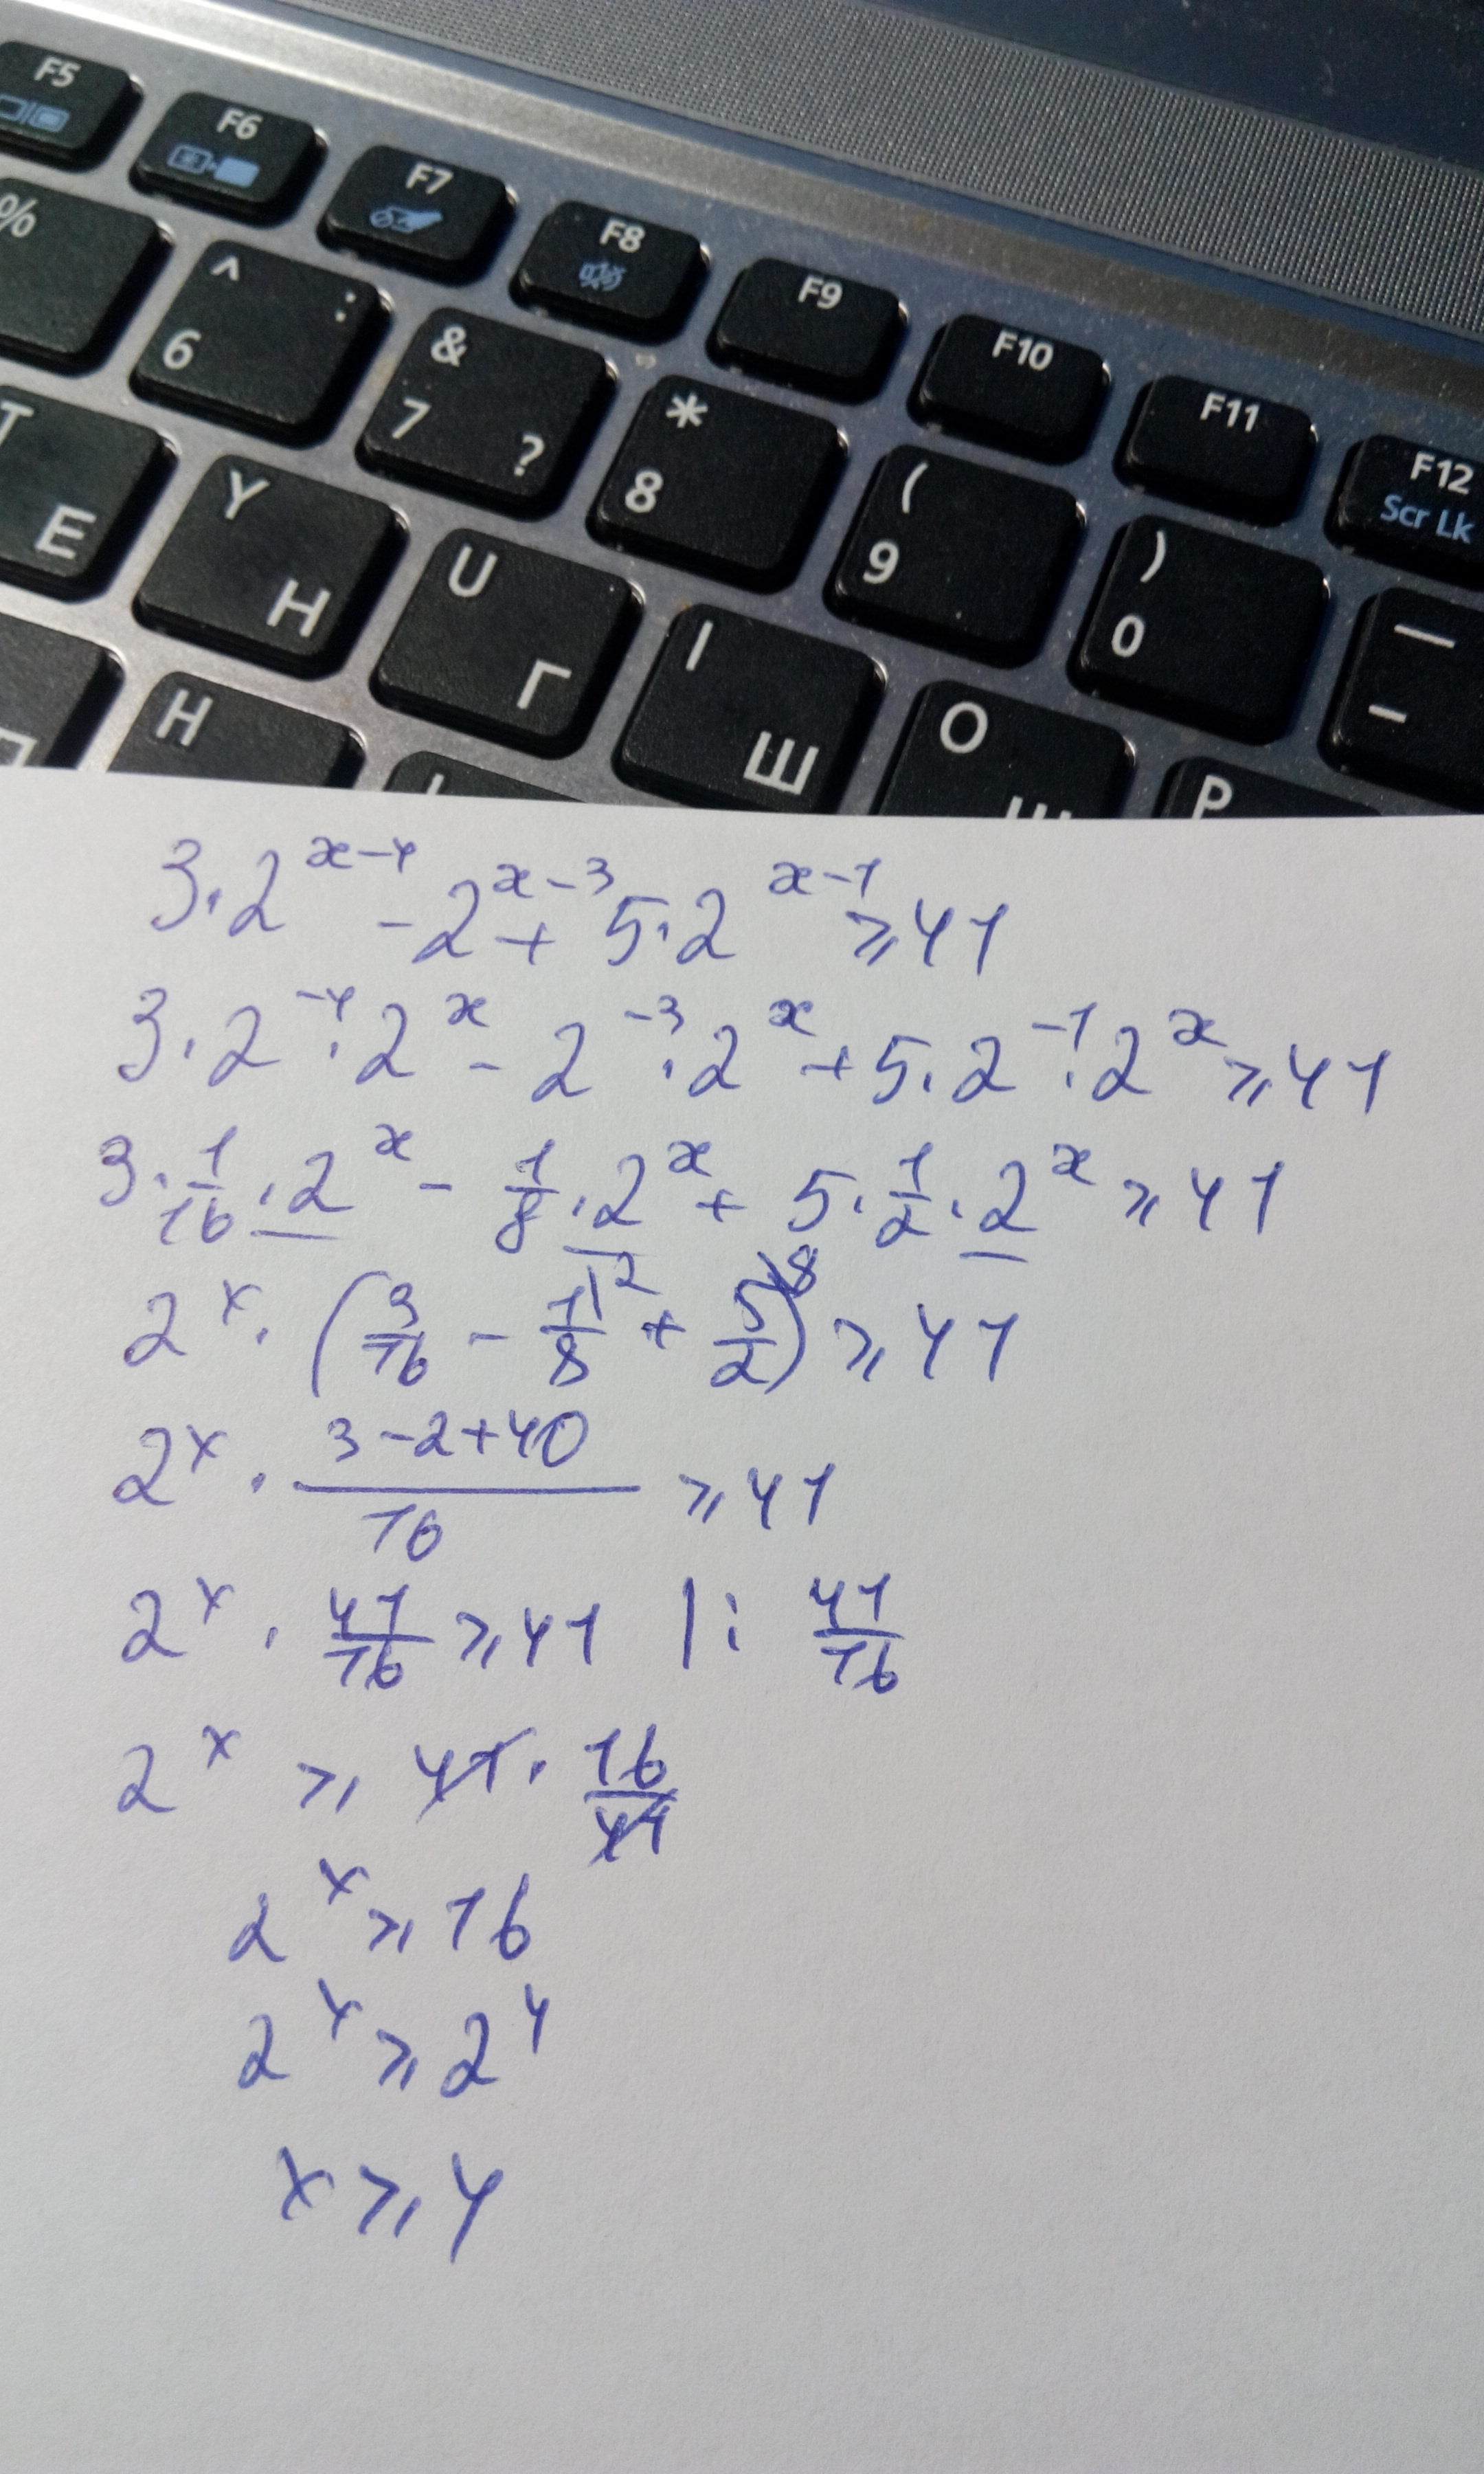 F5 F6 F7 F8 F9 F10 F11 F12
Scr Lk
% ^ : & * ( )
6 7 ? 8 9 0 — -
T Y U I O P
Е Н Г Ш
H
3·2^(x-4) - 2^(x-3) + 5·2^(x-1) ≥ 41
3·2^(-4)·2^x - 2^(-3)·2^x + 5·2^(-1)·2^x ≥ 41
3·1/16·2^x - 1/8·2^x + 5·1/2·2^x ≥ 41
2^x·(3/16 - 1/8 |2 + 5/2 \8) ≥ 41
2^x · (3-2+40)/16 ≥ 41
2^x · 41/16 ≥ 41 |: 41/16
2^x ≥ 41 · 16/41
2^x ≥ 16
2^x ≥ 2^4
x ≥ 4